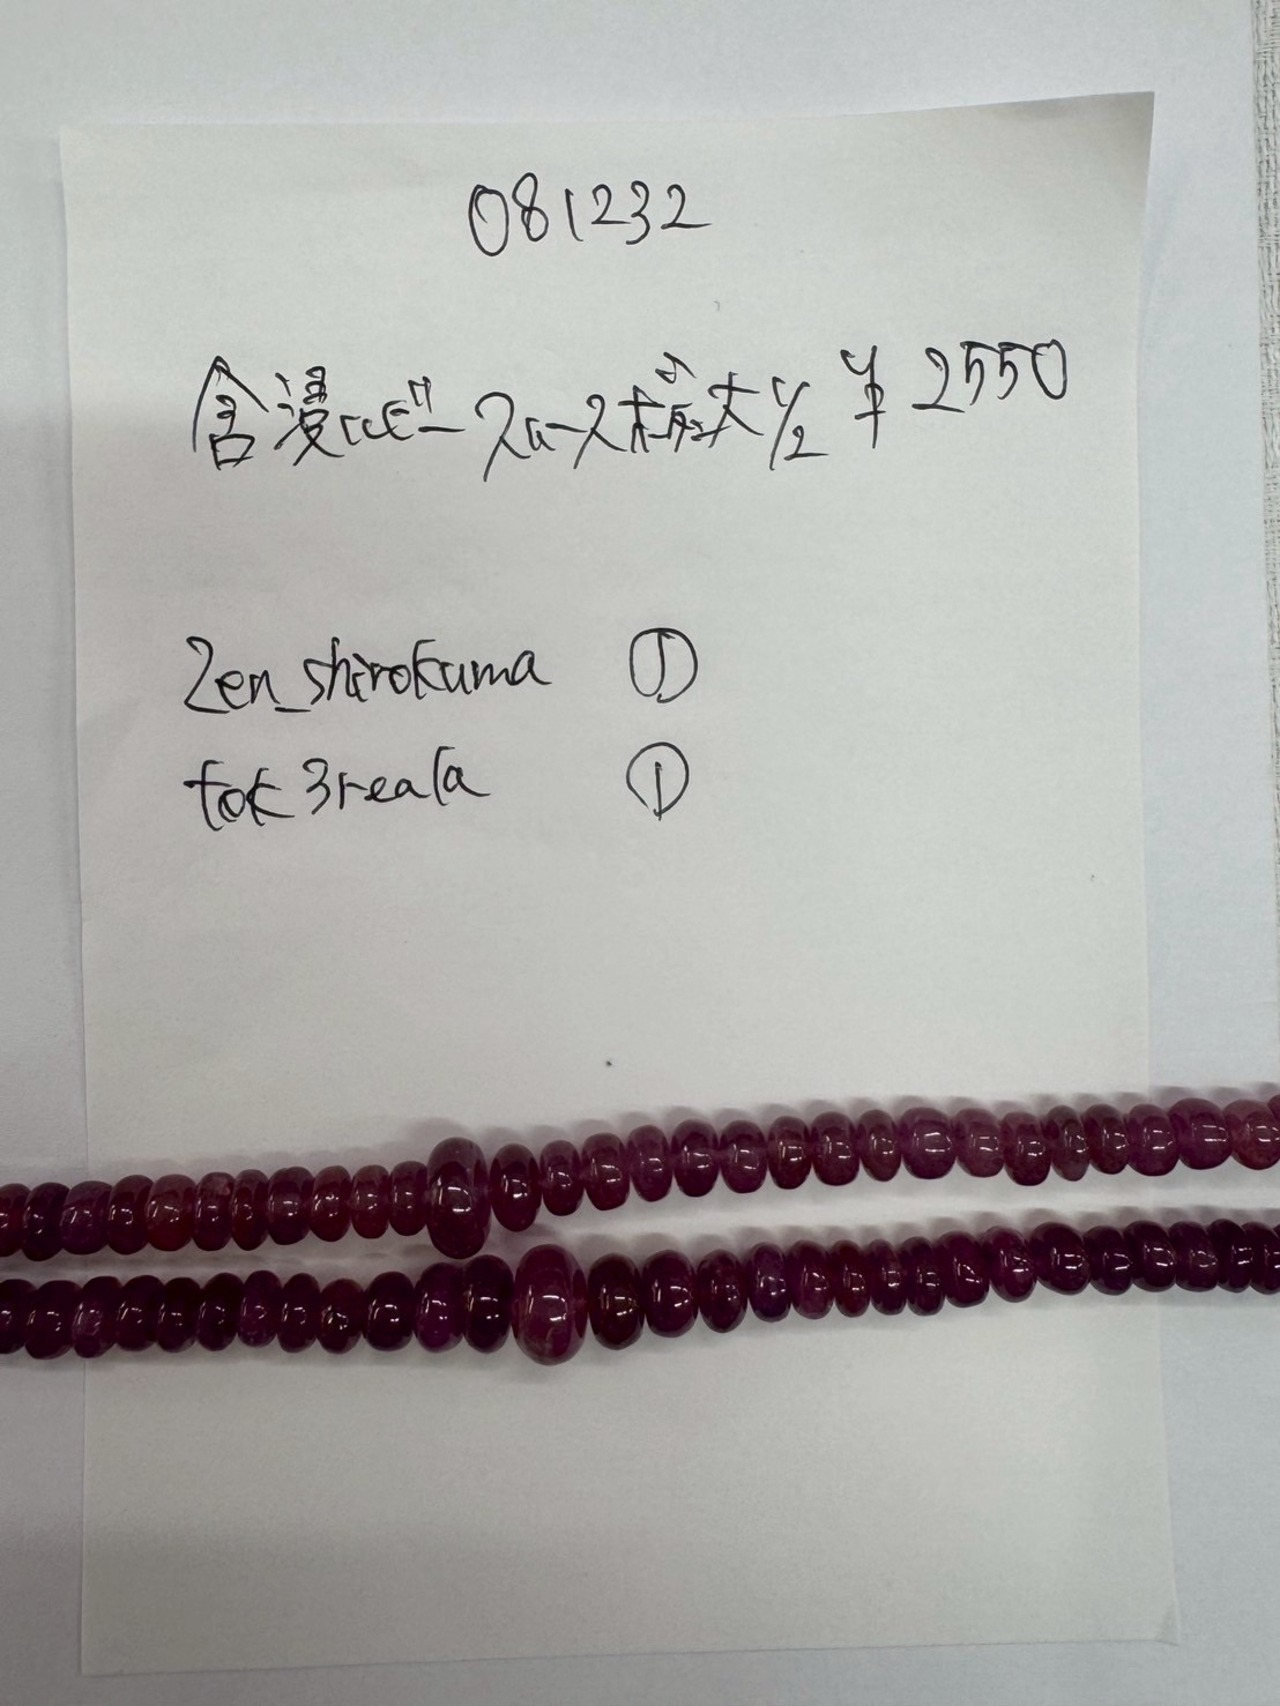 081232
含浸ルビースムース横穴大 1/2 ¥2550
Zen_shirokuma ①
tok3reala ①